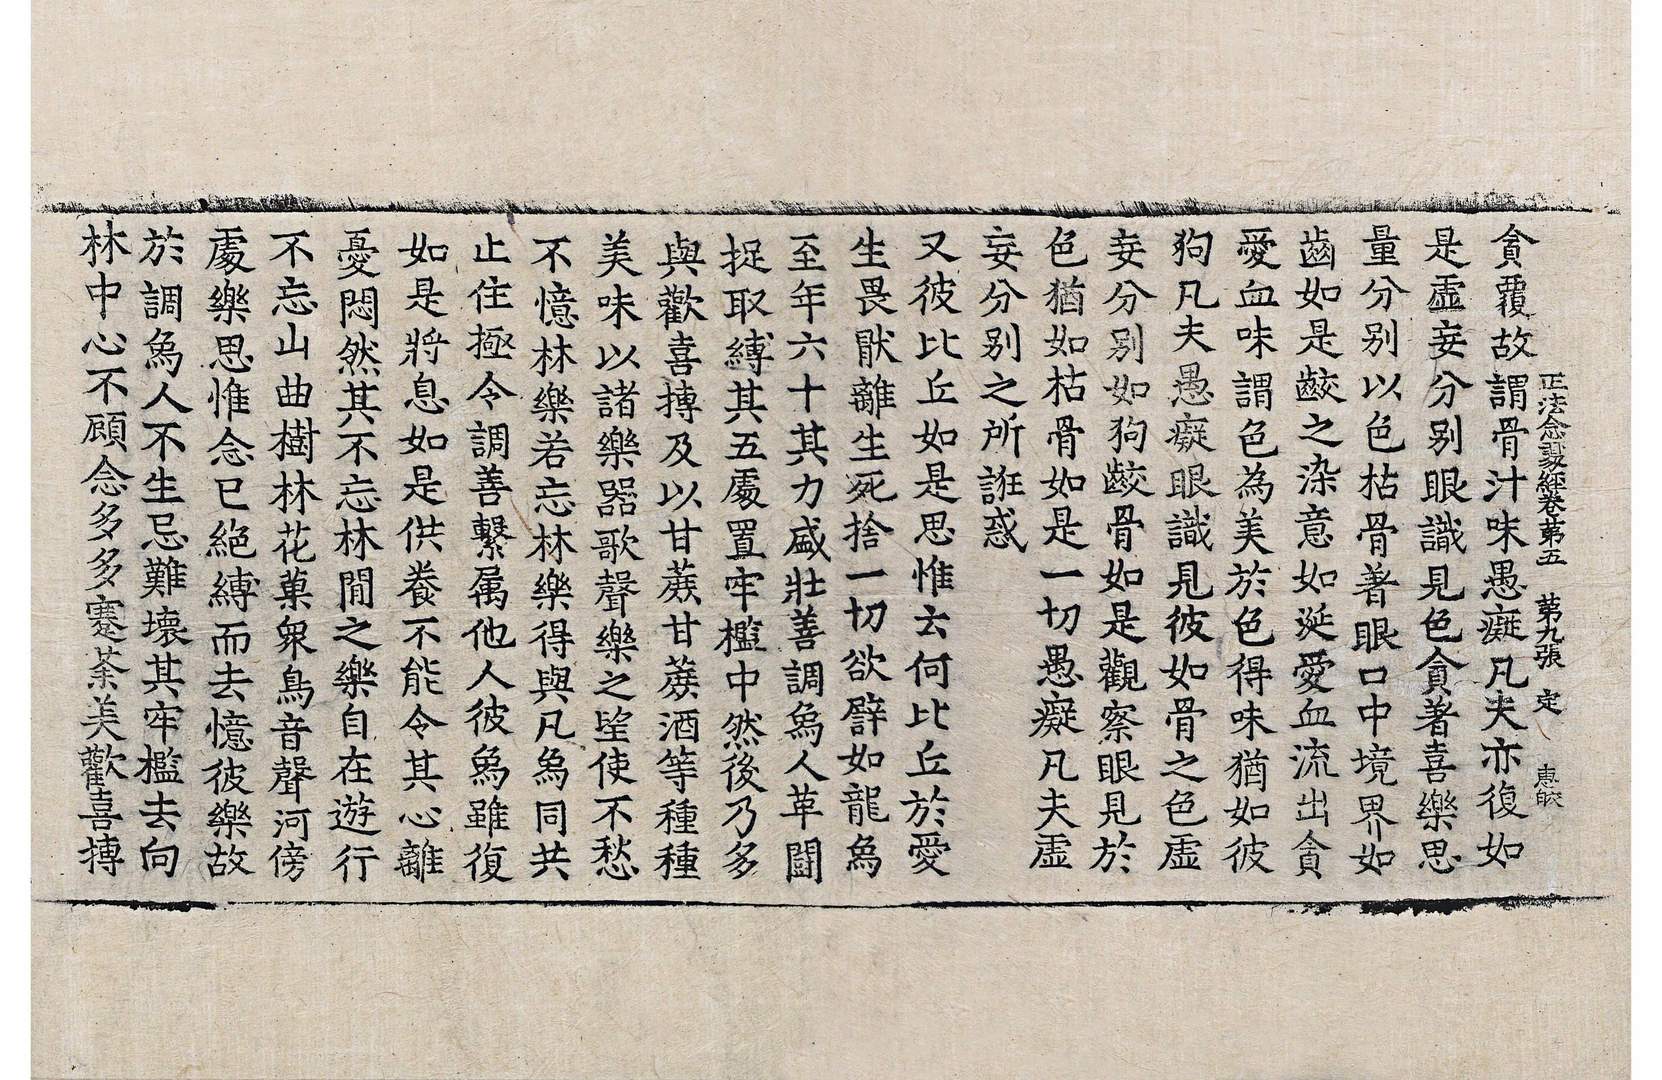 正法念處經卷第五 第九張 定
貪覆故謂骨汁味愚癡凡夫亦復如
是虛妄分別眼識見色貪著喜樂思
量分別以色枯骨著眼口中境界如
齒如是齩之染意如涎愛血流出貪
愛血味謂色為美於色得味猶如彼
狗凡夫愚癡眼識見彼如骨之色虛
妄分別如狗齩骨如是觀察眼見於
色猶如枯骨如是一切愚癡凡夫虛
妄分別之所誑惑
又彼比丘如是思惟云何比丘於愛
生畏猒離生死捨一切欲譬如龍鳥
至年六十其力盛壯善調鳥人革鬪
捉取縛其五處置牢檻中然後乃多
與歡喜摶及以甘蔗甘蔗酒等種種
美味以諸樂器歌聲樂之望使不愁
不憶林樂若忘林樂得與凡鳥同共
止住極令調善繫屬他人彼鳥雖復
如是將息如是供養不能令其心離
憂悶然其不忘林間之樂自在遊行
不忘山曲樹林花菓衆鳥音聲河傍
處樂思惟念已絕縛而去憶彼樂故
於調鳥人不生忌難壞其牢檻去向
林中心不顧念多多蹇荼美歡喜摶